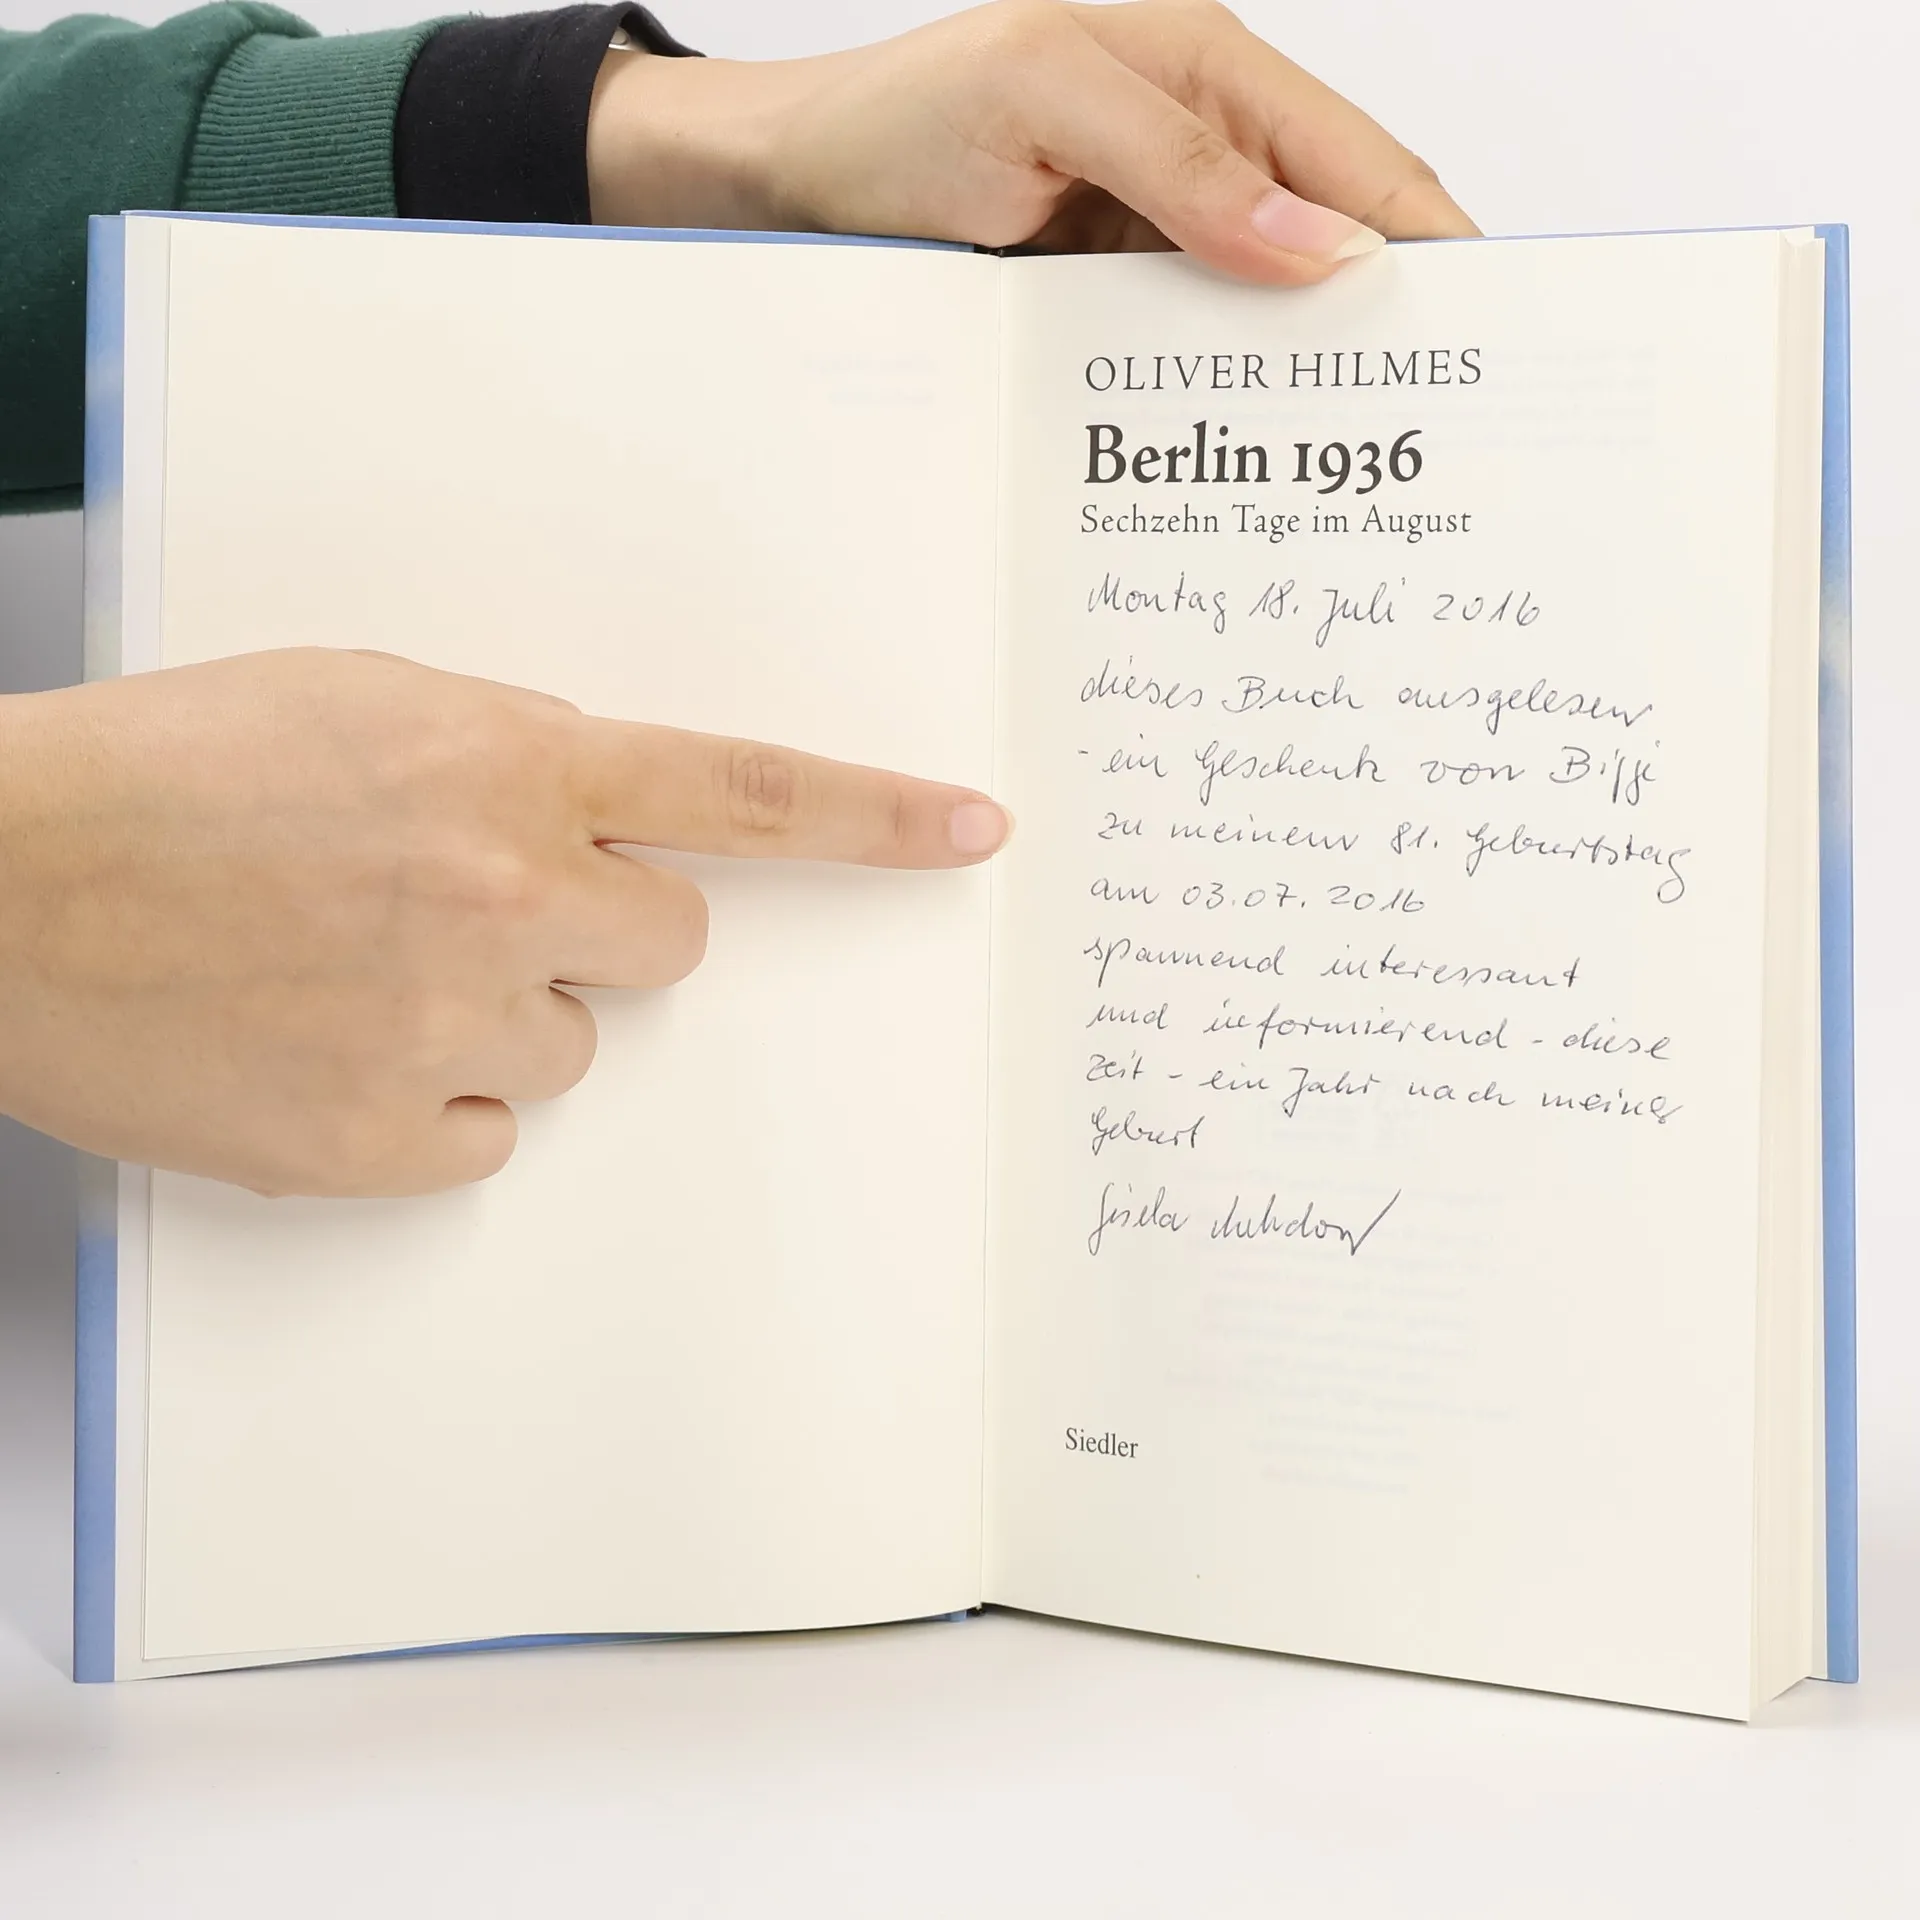 OLIVER HILMES
Berlin 1936
Sechzehn Tage im August
Montag 18. Juli 2016
dieses Buch ausgelesen
- ein Geschenk von
zu meinem 81. Geburtstag
am 03.07.2016
spannend interessant
und informierend - diese
Zeit - ein Jahr nach meiner
Geburt
Gisela
Siedler